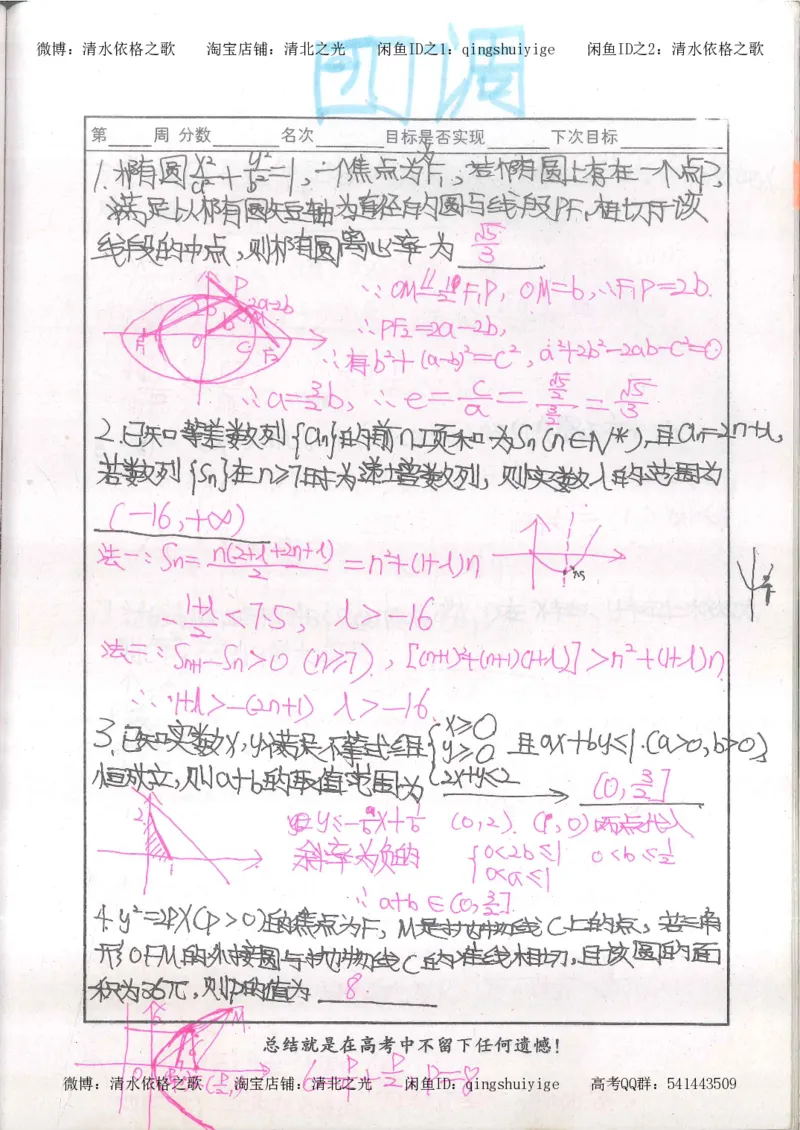 微博：清水依格之歌 淘宝店铺：清北之光 闲鱼ID之1：qingshuiyige 闲鱼ID之2：清水依格之歌
团调
第 周 分数 名次 目标是否实现 下次目标
1.椭圆x²/a²+y²/b²=1,一个焦点为F₁,若椭圆上存在一个点P,
满足以椭圆短轴为直径的圆与线段PF₁相切于该
线段的中点,则椭圆离心率为 √5/3
∵OM=1/2F₁P, OM=b,∴F₁P=2b.
∴PF₂=2a-2b,
∴有b²+(a-b)²=c², a²+2b²-2ab-c²=0
∴a=3/2b, ∴e=c/a=(√5/2)/(3/2)=√5/3
2.已知等差数列{an}的前n项和为Sn(n∈N*),且an=2n+λ,
若数列{Sn}在n≥7时为递增数列,则实数λ的范围为
(-16,+∞)
法一:Sn=n(2+λ+2n+λ)/2=n²+(1+λ)n
-(1+λ)/2<7.5, λ>-16
法二:Sn+1-Sn>0 (n≥7), [(n+1)²+(n+1)(1+λ)]>n²+(1+λ)n
∴1+λ>-(2n+1) λ>-16
3.已知实数x,y满足不等式组{x≥0 y≥0 2x+y≤2 且ax+by≤1.(a>0,b>0)
恒成立,则a+b的取值范围为 (0,3/2]
y≤-a/bx+1/b (0,2).(1,0)两点代入
斜率为负的 {0<2b≤1 0<a≤1 0<b≤1/2
∴a+b∈(0,3/2]
4.y²=2PX(P>0)的焦点为F,M是抛物线C上的点,若三角
形OFM的外接圆与抛物线C的准线相切,且该圆的面
积为36π,则P的值为 8
总结就是在高考中不留下任何遗憾!
6=P/4+P/2 P=8
微博：清水依格之歌 淘宝店铺：清北之光 闲鱼ID：qingshuiyige 高考QQ群：541443509